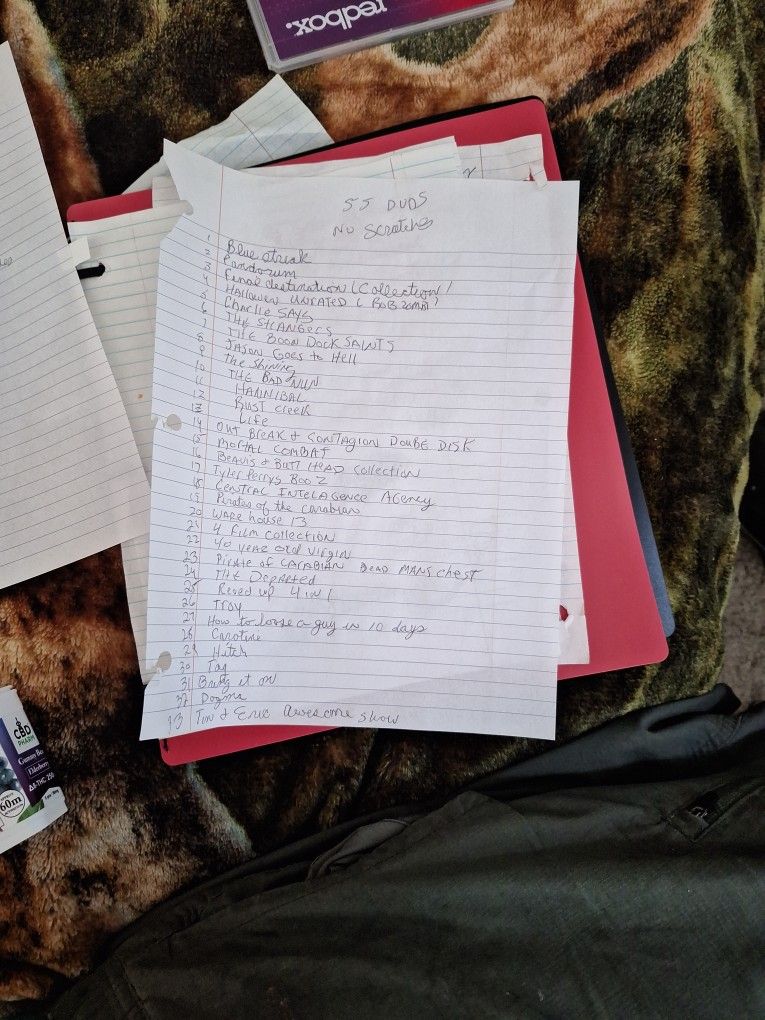 redbox.
55 DVDS
No Scratches
1 Blue streak
2 Pandorum
3 Final destination (Collection)
4 HALLOWEEN UNRATED ( ROB ZOMBI)
5 CHARLIE SAYS
6 THE STRANGERS
7 THE BOON DOCK SAINTS
8 JASON GOES to Hell
9 The Shining
10 THE BAD NUN
11 HANNIBAL
12 Rust creek
13 Life
14 OUT BREAK & CONTAGION DOUBE DISK
15 MORTAL COMBAT
16 Beavis & BUTT HEAD Collection
17 Tyler Perrys BOO 2
18 CENTRAL INTELAGENCE AGENCY
19 Pirates of the carabian
20 WARE house 13
21 4 Film collection
22 40 year old Virgin
23 Pirate of CARABIAN DEAD MANS chest
24 THE Departed
25 Reved up 4 in 1
26 Troy
27 How to loose a guy in 10 days
28
29 Hitch
30 Tag
31 Bring it on
32 Dogma
33 Tim & Eric awesome show
CBD
PHARM
Elderberry
Δ8-THC 250
60m